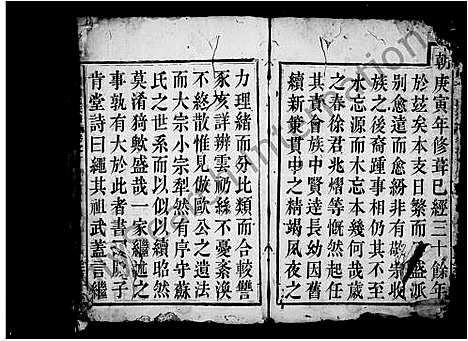 朝庚寅年修葺已經三十餘年
於茲矣本支日繁而
盛派
別愈遠而愈紛非有敬宗收
族之後裔踵事相仍其不至
水忘源而木忘本幾何哉歲
之春徐君兆熠等慨然起任
其責會族中賢達長幼因舊
續新彙貫中之精竭夙夜之
力理緒而分比類而合較讐
豕亥詳辨雲礽絲不憂紊渙
不終散惟見倣歐公之遺法
而大宗小宗犁然有序守蘇
氏之世系而以似以續昭然
莫淆猗歟盛哉一家繼述之
事孰有大於此者書
子
肯堂詩曰繩其祖武蓋言繼